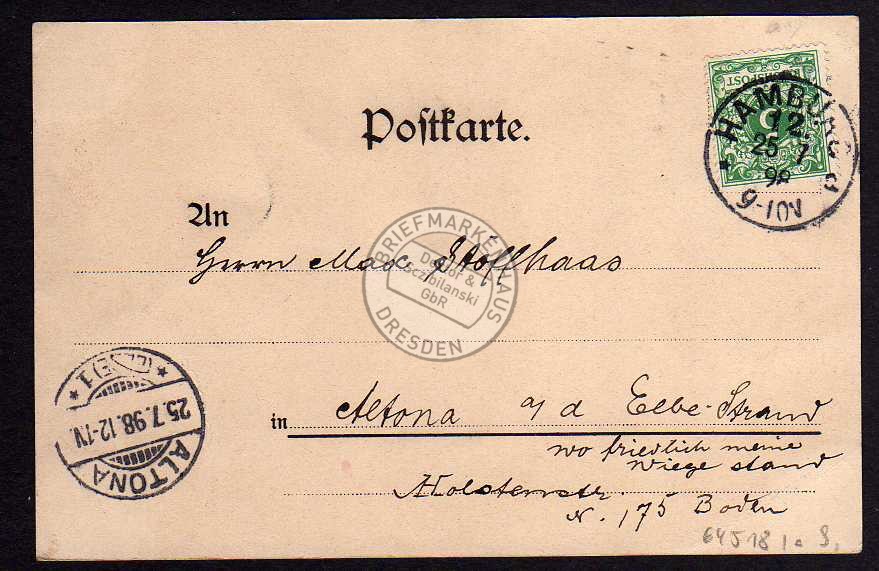 Postkarte.
REICHSPOST
5
HAMBURG
12.
25 7
98
9-10V
An
Herrn Max Stoffhaas
BRIEFMARKENHAUS
Dr. &
Sczibilanski
GbR
DRESDEN
in Altona a/d Elbe-Strand
wo friedlich meine
Wiege stand
Holstenstr
N. 175 Boden
ALTONA
25.7.98.12-1N.
* (ELBE) 1 *
64518